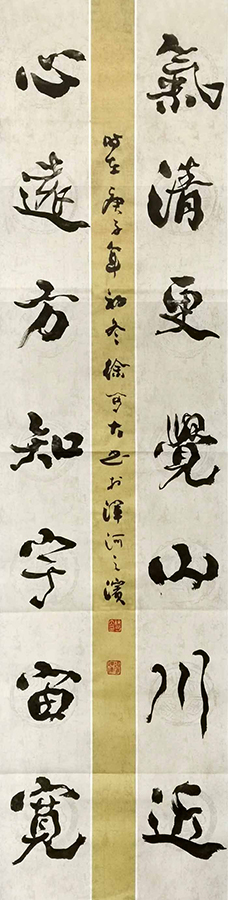 氣清更覺山川近
心遠方知宇宙寬
時在庚子年初冬徐可大书於渾河之濱